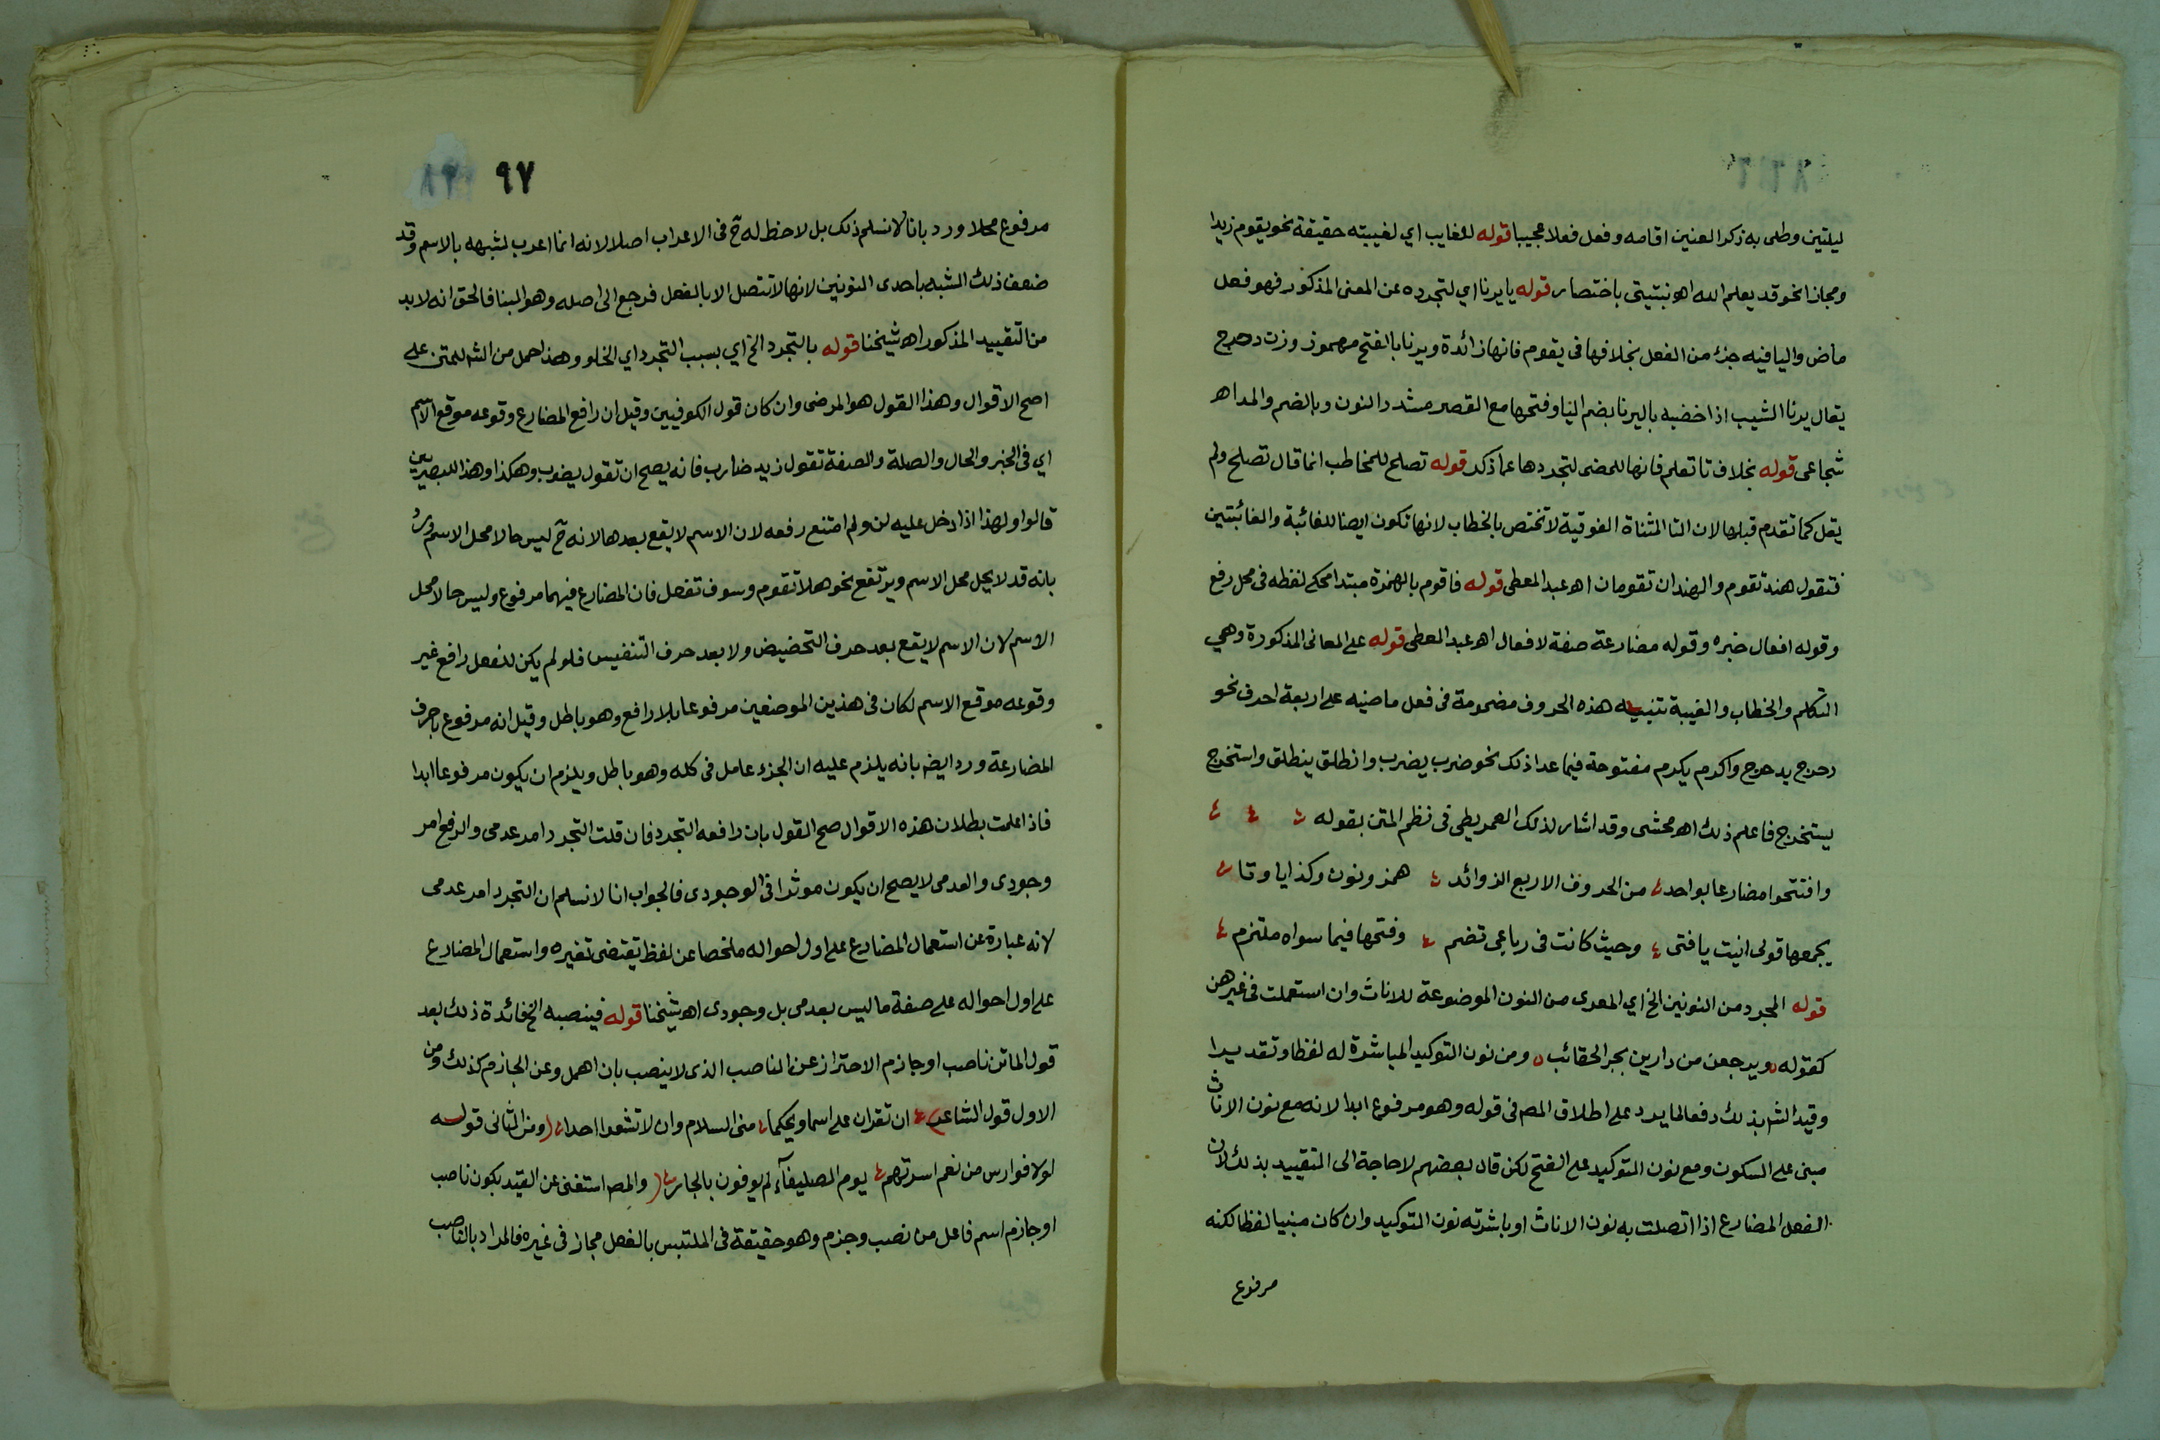 ليلتين وطلى به ذكر العنين اقامه وفعل فعلا عجيبا قوله للغايب اي لغيبته حقيقة نحو يقوم زيدا
ومجازا نحو قد يعلم الله اهـ نبتيتى باختصار قوله يا يرنا اي لتجرده عن المعنى المذكور فهو فعل
ماض واليا فيه جزء من الفعل بخلافها فى يقوم فانها زائدة ويرنا بالفتح مهموز وزن دحرج
يقال يرنا الشيب اذا خضبه باليرنا بضم اليا وفتحها مع القصر مشدد النون وبالضم والمد اهـ
شجاعى قوله بخلاف تا تعلم فانها للمضى لتجردها عما ذكر قوله تصلح للمخاطب انما قال تصلح ولم
يقل كما تقدم قبلها لان التا المثناة الفوقية لا تختص بالخطاب لانها تكون ايضا للغائبة والغائبتين
فتقول هند تقوم والهندان تقومان اهـ عبد المعطى قوله فاقوم بالهمزة مبتدا محكى لفظه فى محل رفع
وقوله افعال خبره وقوله مضارعة صفة لافعال اهـ عبد المعطى قوله على المعانى المذكورة وهي
التكلم والخطاب والغيبة تنبيه هذه الحروف مضمومة فى فعل ماضيه على اربعة احرف نحو
دحرج يدحرج واكرم يكرم مفتوحة فيما عدا ذلك نحو ضرب يضرب وانطلق ينطلق واستخرج
يستخرج فاعلم ذلك اهـ محشى وقد اشار لذلك العمريطى فى نظم المتن بقوله
وافتتحوا مضارعا بواحد من الحروف الاربع الزوائد همز ونون وكذا يا وتا
يجمعها قولى انيت يا فتى وحيث كانت فى رباعي تضم وفتحها فيما سواه ملتزم
قوله المجرد من النونين الخ اي المعرى من النون الموضوعة للاناث وان استعملت فى غيرهن
كقوله ويرجعن من دارين بجر الحقائب ومن نون التوكيد المباشرة له لفظا وتقديرا
وقيد الش بذلك دفعا لما يرد على اطلاق المص فى قوله وهو مرفوع ابدا لانه مع نون الاناث
مبنى على السكون ومع نون التوكيد على الفتح لكن قال بعضهم لا حاجة الى التقييد بذلك لان
الفعل المضارع اذا اتصلت به نون الاناث او باشرته نون التوكيد وان كان مبنيا لفظا لكنه
مرفوع
٩٧
مرفوع محلا ورد بانا لا نسلم ذلك بل لا حظ له ح فى الاعراب اصلا لانه انما اعرب لشبهه بالاسم وقد
ضعف ذلك الشبه باحدى النونين لانها لا تتصل الا بالفعل فرجع الى اصله وهو البنا فالحق انه لا بد
من التقييد المذكور اهـ شيخنا قوله بالتجرد الخ اي بسبب التجرد اي الخلو وهذا حمل من الش للمتن على
اصح الاقوال وهذا القول هو المرضى وان كان قول الكوفيين وقيل ان رافع المضارع وقوعه موقع الاسم
اي فى الخبر والحال والصلة والصفة تقول زيد ضارب فانه يصح ان تقول يضرب وهكذا وهذا للبصريين
قالوا ولهذا اذا دخل عليه لن ولم امتنع رفعه لان الاسم لا يقع بعدها لانه ح ليس حالا محل الاسم ورد
بانه قد لا يحل محل الاسم ويرتفع نحو هلا تقوم وسوف تفعل فان المضارع فيهما مرفوع وليس حالا محل
الاسم لان الاسم لا يقع بعد حرف التحضيض ولا بعد حرف التنفيس فلو لم يكن للفعل رافع غير
وقوعه موقع الاسم لكان فى هذين الموضعين مرفوعا بلا رافع وهو باطل وقيل انه مرفوع باحرف
المضارعة ورد ايضا بانه يلزم عليه ان الجزء عامل فى كله وهو باطل ويلزم ان يكون مرفوعا ابدا
فاذا علمت بطلان هذه الاقوال صح القول بان رافعه التجرد فان قلت التجرد امر عدمى والرفع امر
وجودى والعدمى لا يصح ان يكون موثرا فى الوجودى فالجواب انا لا نسلم ان التجرد امر عدمى
لانه عبارة عن استعمال المضارع على اول احواله ملخصا عن لفظ يقتضى تغيره واستعمال المضارع
على اول احواله على صفة ما ليس بعدمى بل وجودى اهـ شيخنا قوله فينصبه الخ فائدة ذلك بعد
قول الماتن ناصب او جازم الاحتراز عن الناصب الذى لا ينصب بان اهمل وعن الجازم كذلك ومن
الاول قول الشاعر ان تقران على اسما ويحكما منى السلام وان لا تشعرا احدا ومن الثانى قوله
لولا فوارس من نعم اسرتهم يوم الصليفآء لم يوفون بالجار والمص استغنى عن القيد بكون ناصب
او جازم اسم فاعل من نصب وجزم وهو حقيقة فى الملتبس بالفعل مجاز فى غيره فالمراد بالناصب